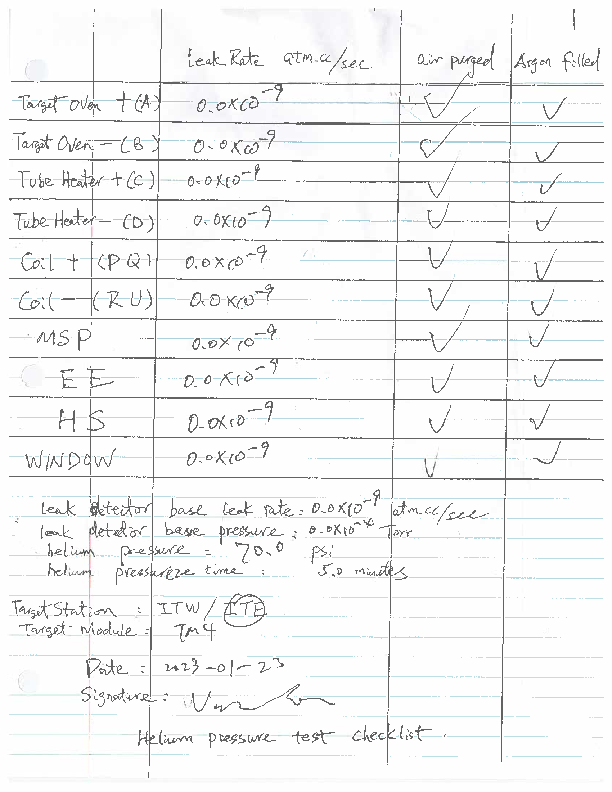 Leak Rate atm.cc/sec. air purged Argon filled
Target Oven + (A) 0.0X10⁻⁹ ✓ ✓
Target Oven - (B) 0.0X10⁻⁹ ✓ ✓
Tube Heater + (C) 0.0X10⁻⁹ ✓ ✓
Tube Heater - (D) 0.0X10⁻⁹ ✓ ✓
Coil + (PQ) 0.0X10⁻⁹ ✓ ✓
Coil - (RU) 0.0X10⁻⁹ ✓ ✓
MSP 0.0X10⁻⁹ ✓ ✓
EE 0.0X10⁻⁹ ✓ ✓
HS 0.0X10⁻⁹ ✓ ✓
WINDOW 0.0X10⁻⁹ ✓ ✓
leak detector base leak rate: 0.0X10⁻⁹ atm.cc/sec
leak detector base pressure: Torr
helium pressure = 70.0 psi
helium pressureze time : 5.0 minutes
Target Station : ITW / ITE
Target Module = TM4
Date : 2023-01-23
Signature :
Helium pressure test checklist.